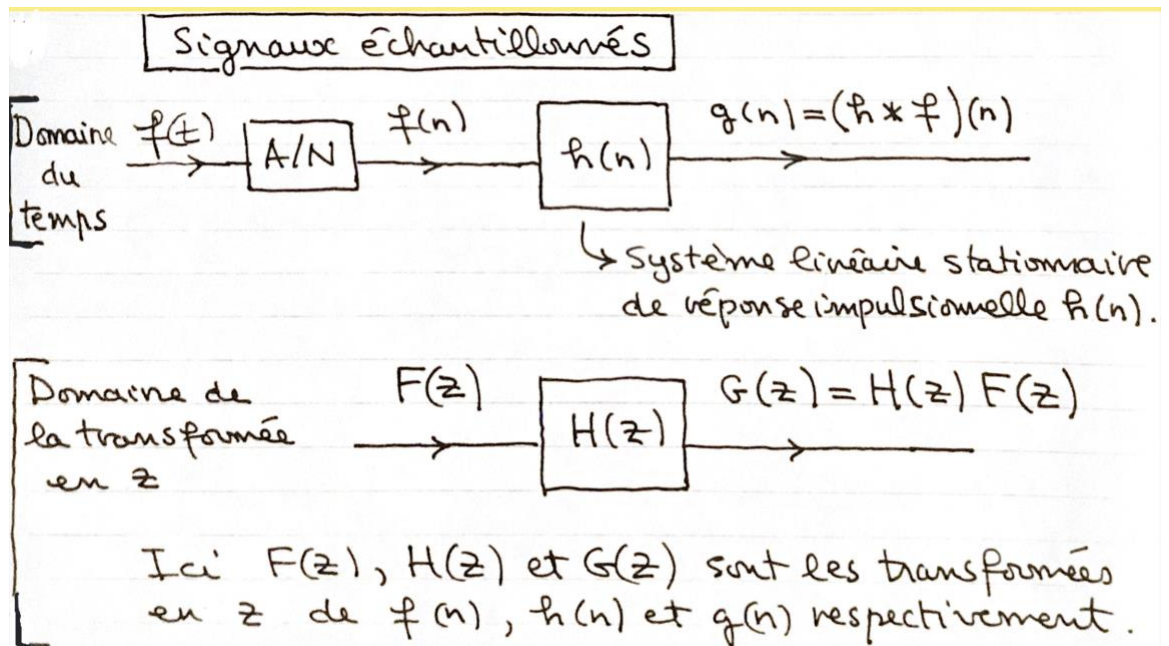 Signaux échantillonnés
Domaine
du
temps
f(t)
A/N
f(n)
h(n)
g(n)=(h*f)(n)
↳ Système linéaire stationnaire
de réponse impulsionnelle h(n).
Domaine de
la transformée
en z
F(z)
H(z)
G(z)=H(z)F(z)
Ici F(z), H(z) et G(z) sont les transformées
en z de f(n), h(n) et g(n) respectivement.